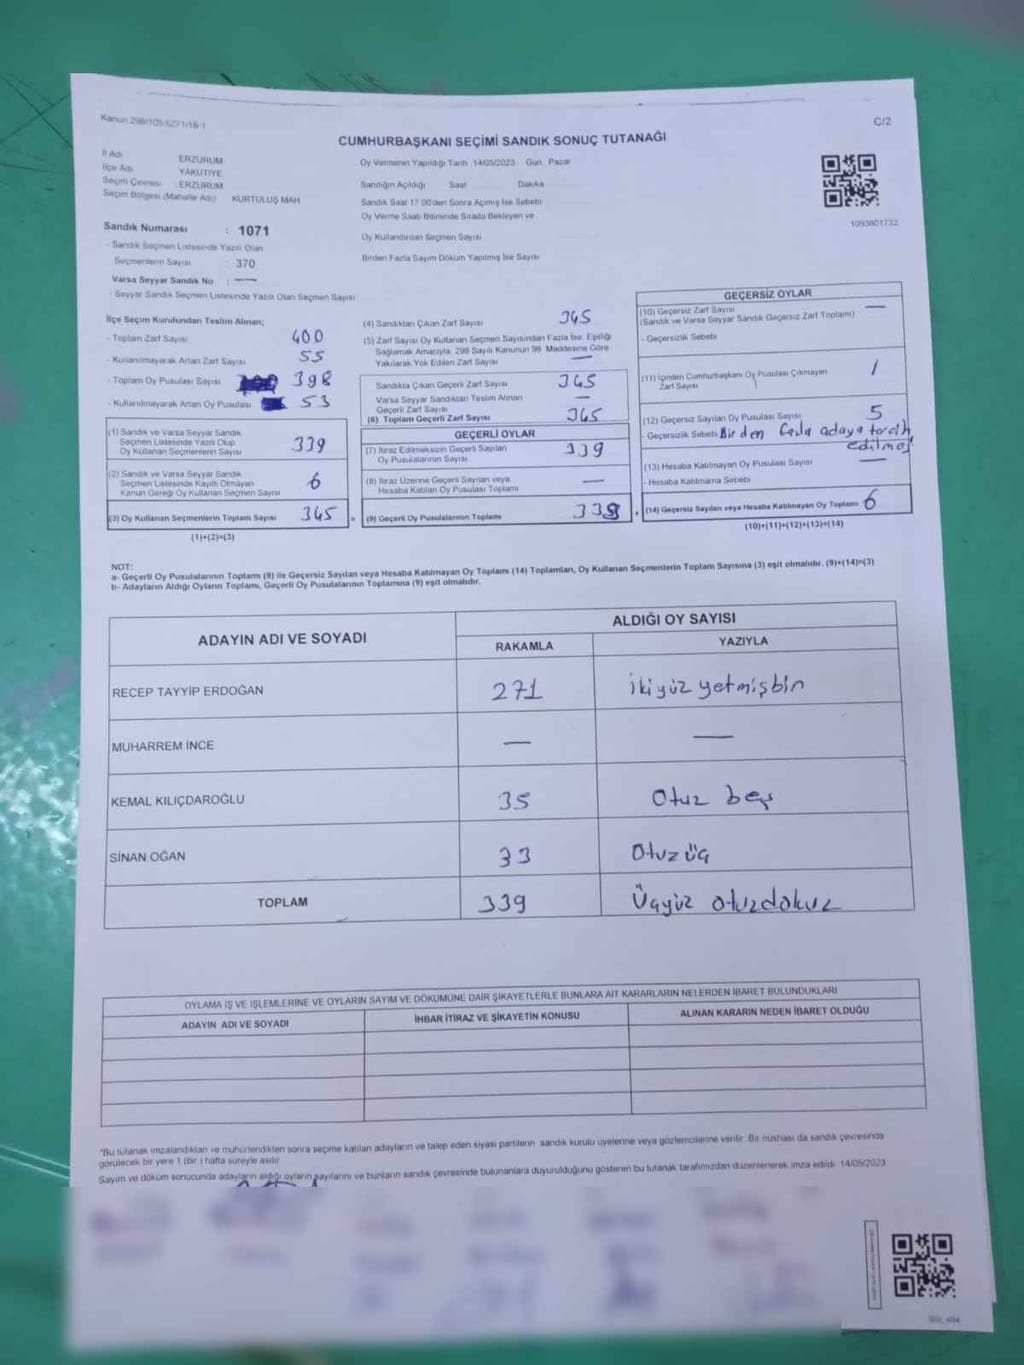 Kanun 298/105-6271/18-1
CUMHURBAŞKANI SEÇİMİ SANDIK SONUÇ TUTANAĞI
C/2
İl Adı ERZURUM
İlçe Adı YAKUTİYE
Seçim Çevresi : ERZURUM
Seçim Bölgesi (Mahalle Adı) KURTULUŞ MAH
Sandık Numarası : 1071
- Sandık Seçmen Listesinde Yazılı Olan
Seçmenlerin Sayısı : 370
Varsa Seyyar Sandık No : —
- Seyyar Sandık Seçmen Listesinde Yazılı Olan Seçmen Sayısı
Oy Vermenin Yapıldığı Tarih 14/05/2023 Gün Pazar
Sandığın Açıldığı Saat Dakika
Sandık Saat 17 00'den Sonra Açımış İse Sebebi
Oy Verme Saati Bitiminde Sırada Bekleyen ve
Oy Kullandırılan Seçmen Sayısı
Birden Fazla Sayım Döküm Yapılmış İse Sayısı
1093801732
İlçe Seçim Kurulundan Teslim Alınan;
- Toplam Zarf Sayısı 400
- Kullanılmayarak Artan Zarf Sayısı 55
- Toplam Oy Pusulası Sayısı 398
- Kullanılmayarak Artan Oy Pusulası 53
(1) Sandık ve Varsa Seyyar Sandık
Seçmen Listesinde Yazılı Olup
Oy Kullanan Seçmenlerin Sayısı 339
(2) Sandık ve Varsa Seyyar Sandık
Seçmen Listesinde Kayıtlı Olmayan
Kanun Gereği Oy Kullanan Seçmen Sayısı 6
(3) Oy Kullanan Seçmenlerin Toplam Sayısı 345
(1)+(2)=(3)
(4) Sandıktan Çıkan Zarf Sayısı 345
(5) Zarf Sayısı Oy Kullanan Seçmen Sayısından Fazla İse Eşitliği
Sağlamak Amacıyla, 298 Sayılı Kanunun 98. Maddesine Göre
Yakılarak Yok Edilen Zarf Sayısı —
Sandıkta Çıkan Geçerli Zarf Sayısı 345
Varsa Seyyar Sandıktan Teslim Alınan
Geçerli Zarf Sayısı —
(6) Toplam Geçerli Zarf Sayısı 345
GEÇERLİ OYLAR
(7) İtiraz Edilmeksizin Geçerli Sayılan
Oy Pusulalarının Sayısı 339
(8) İtiraz Üzerine Geçerli Sayılan veya
Hesaba Katılan Oy Pusulası Toplamı —
(9) Geçerli Oy Pusulalarının Toplamı 339
GEÇERSİZ OYLAR
(10) Geçersiz Zarf Sayısı —
(Sandık ve Varsa Seyyar Sandık Geçersiz Zarf Toplamı)
- Geçersizlik Sebebi
(11) İçinden Cumhurbaşkanı Oy Pusulası Çıkmayan
Zarf Sayısı 1
(12) Geçersiz Sayılan Oy Pusulası Sayısı 5
- Geçersizlik Sebebi Birden fazla adaya tercih
edilmoş
(13) Hesaba Katılmayan Oy Pusulası Sayısı —
- Hesaba Katılmama Sebebi
(14) Geçersiz Sayılan veya Hesaba Katılmayan Oy Toplamı 6
(10)+(11)+(12)+(13)=(14)
NOT:
a- Geçerli Oy Pusulalarının Toplamı (9) ile Geçersiz Sayılan veya Hesaba Katılmayan Oy Toplamı (14) Toplamları, Oy Kullanan Seçmenlerin Toplam Sayısına (3) eşit olmalıdır. (9)+(14)=(3)
b- Adayların Aldığı Oyların Toplamı, Geçerli Oy Pusulalarının Toplamına (9) eşit olmalıdır.
ADAYIN ADI VE SOYADI
ALDIĞI OY SAYISI
RAKAMLA YAZIYLA
RECEP TAYYİP ERDOĞAN 271 İkiyüz yetmişbin
MUHARREM İNCE — —
KEMAL KILIÇDAROĞLU 35 Otuz beş
SİNAN OĞAN 33 Otuz üç
TOPLAM 339 Üçyüz otuzdokuz
OYLAMA İŞ VE İŞLEMLERİNE VE OYLARIN SAYIM VE DÖKÜMÜNE DAİR ŞİKAYETLERLE BUNLARA AİT KARARLARIN NELERDEN İBARET BULUNDUKLARI
ADAYIN ADI VE SOYADI İHBAR İTİRAZ VE ŞİKAYETİN KONUSU ALINAN KARARIN NEDEN İBARET OLDUĞU
*Bu tutanak imzalandıktan ve mühürlendikten sonra seçime katılan adayların ve talep eden siyasi partilerin sandık kurulu üyelerine veya gözlemcilerine verilir. Bir nüshası da sandık çevresinde
görülecek bir yere 1 (bir ) hafta süreyle asılır.
Sayım ve döküm sonucunda adayların aldığı oyların sayılarını ve bunların sandık çevresinde bulunanlara duyurulduğunu gösteren bu tutanak tarafımızdan düzenlenerek imza edildi. 14/05/2023